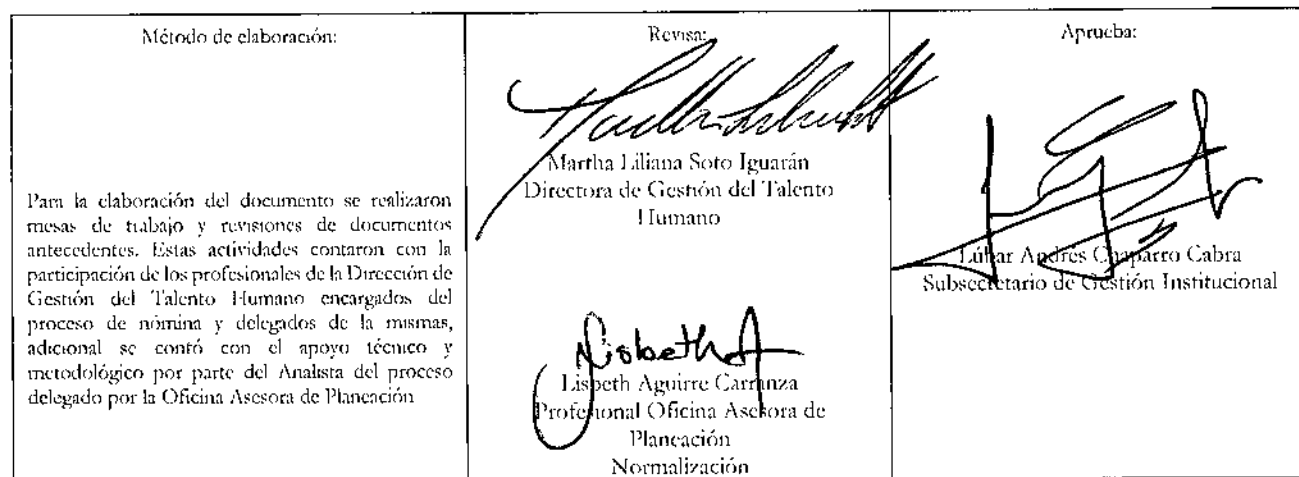 Método de elaboración:
Para la elaboración del documento se realizaron
mesas de trabajo y revisiones de documentos
antecedentes. Estas actividades contaron con la
participación de los profesionales de la Dirección de
Gestión del Talento Humano encargados del
proceso de nómina y delegados de la mismas,
adicional se contó con el apoyo técnico y
metodológico por parte del Analista del proceso
delegado por la Oficina Asesora de Planeación
Revisa:
Martha Liliana Soto Iguarán
Directora de Gestión del Talento
Humano
LisbethA
Lisbeth Aguirre Carranza
Profesional Oficina Asesora de
Planeación
Normalización
Aprueba:
Andrés Chaparro Cabra
Subsecretario de Gestión Institucional